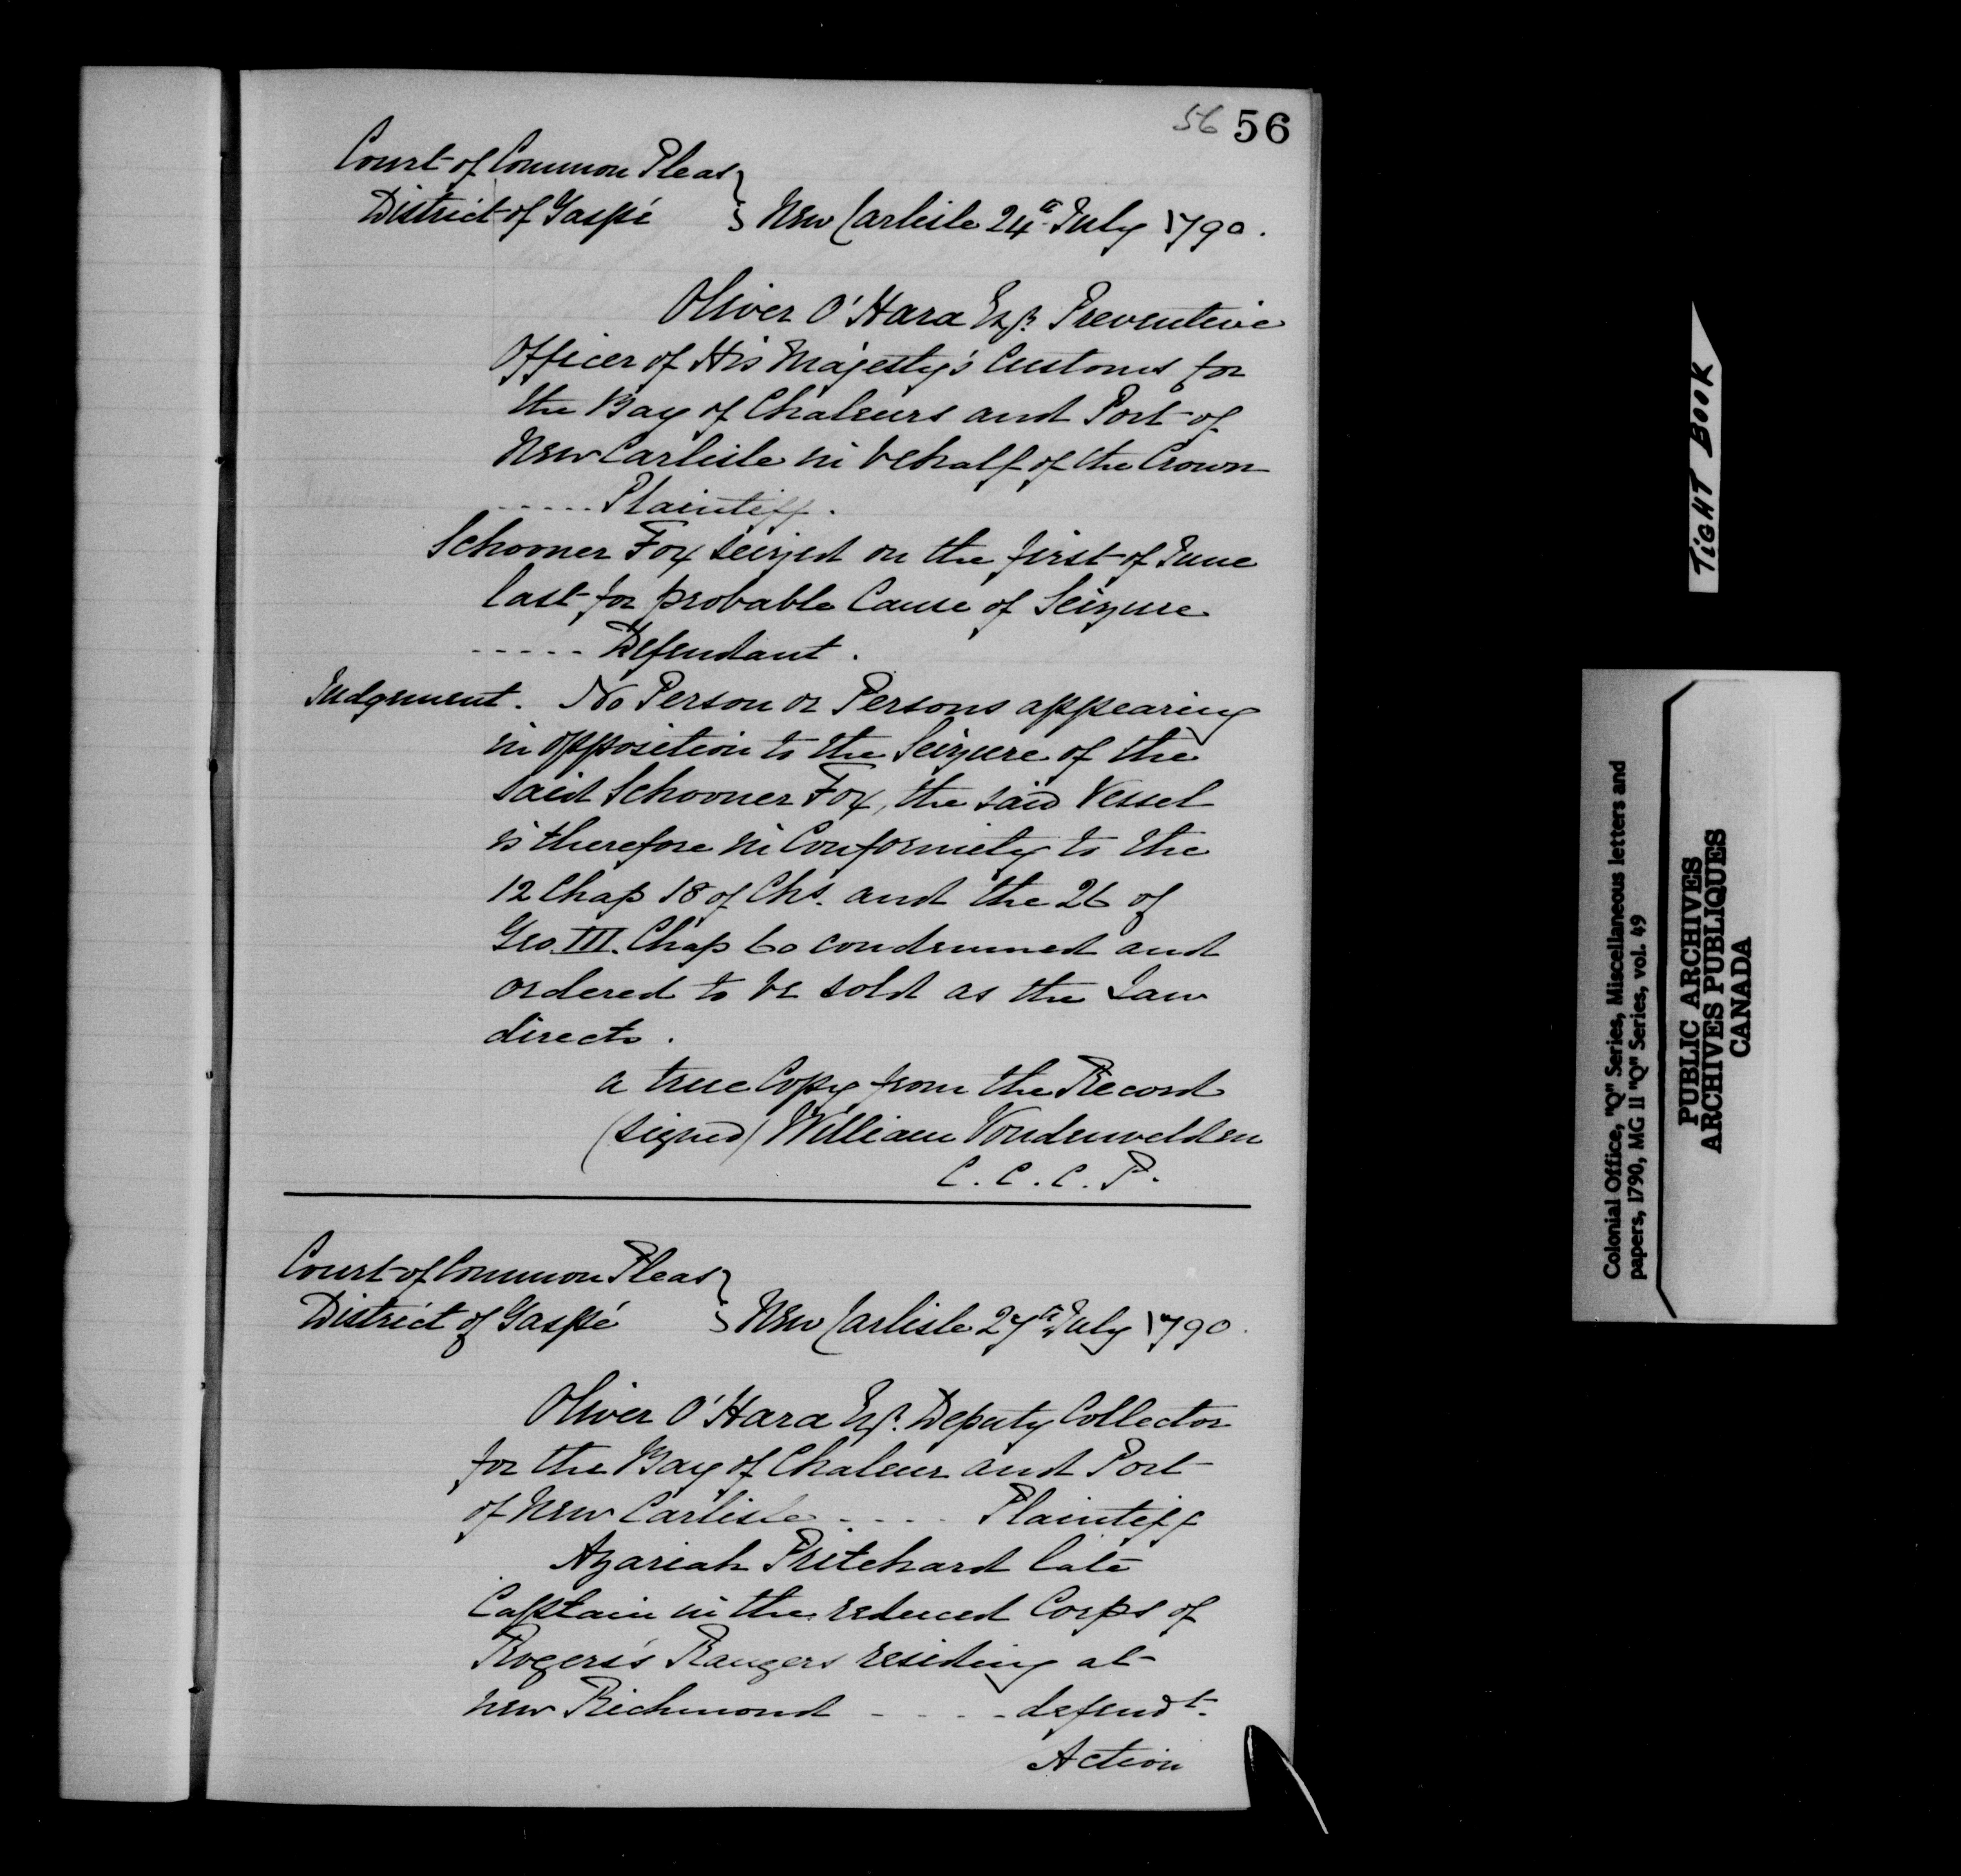 56 56
Court of Common Pleas }
District of Gaspé } New Carlisle 24th July 1790.
Oliver O'Hara Esqr. Preventive
Officer of His Majesty's Customs for
the Bay of Chaleurs and Port of
New Carlisle in behalf of the Crown
..... Plaintiff.
Schooner Fox seized on the first of June
last for probable Cause of Seizure
----- Defendant.
Judgment. No Person or Persons appearing
in opposition to the Seizure of the
said Schooner Fox, the said Vessel
is therefore in Conformity to the
12 Chap 18 of Chs. and the 26 of
Geo. III. Chap 60 condemned and
ordered to be sold as the Law
directs.
a true Copy from the Record
(signed) William Vondenvelden
C. C. C. P.
Court of Common Pleas }
District of Gaspé } New Carlisle 27th July 1790.
Oliver O'Hara Esqr. Deputy Collector
for the Bay of Chaleur and Port
of New Carlisle .... Plaintiff
Azariah Pritchard late
Captain in the reduced Corps of
Rogers's Rangers residing at
New Richmond - - - - defendt.
Action
TIGHT BOOK
Colonial Office, "Q" Series, Miscellaneous letters and
papers, 1790, MG 11 "Q" Series, vol. 49
PUBLIC ARCHIVES
ARCHIVES PUBLIQUES
CANADA